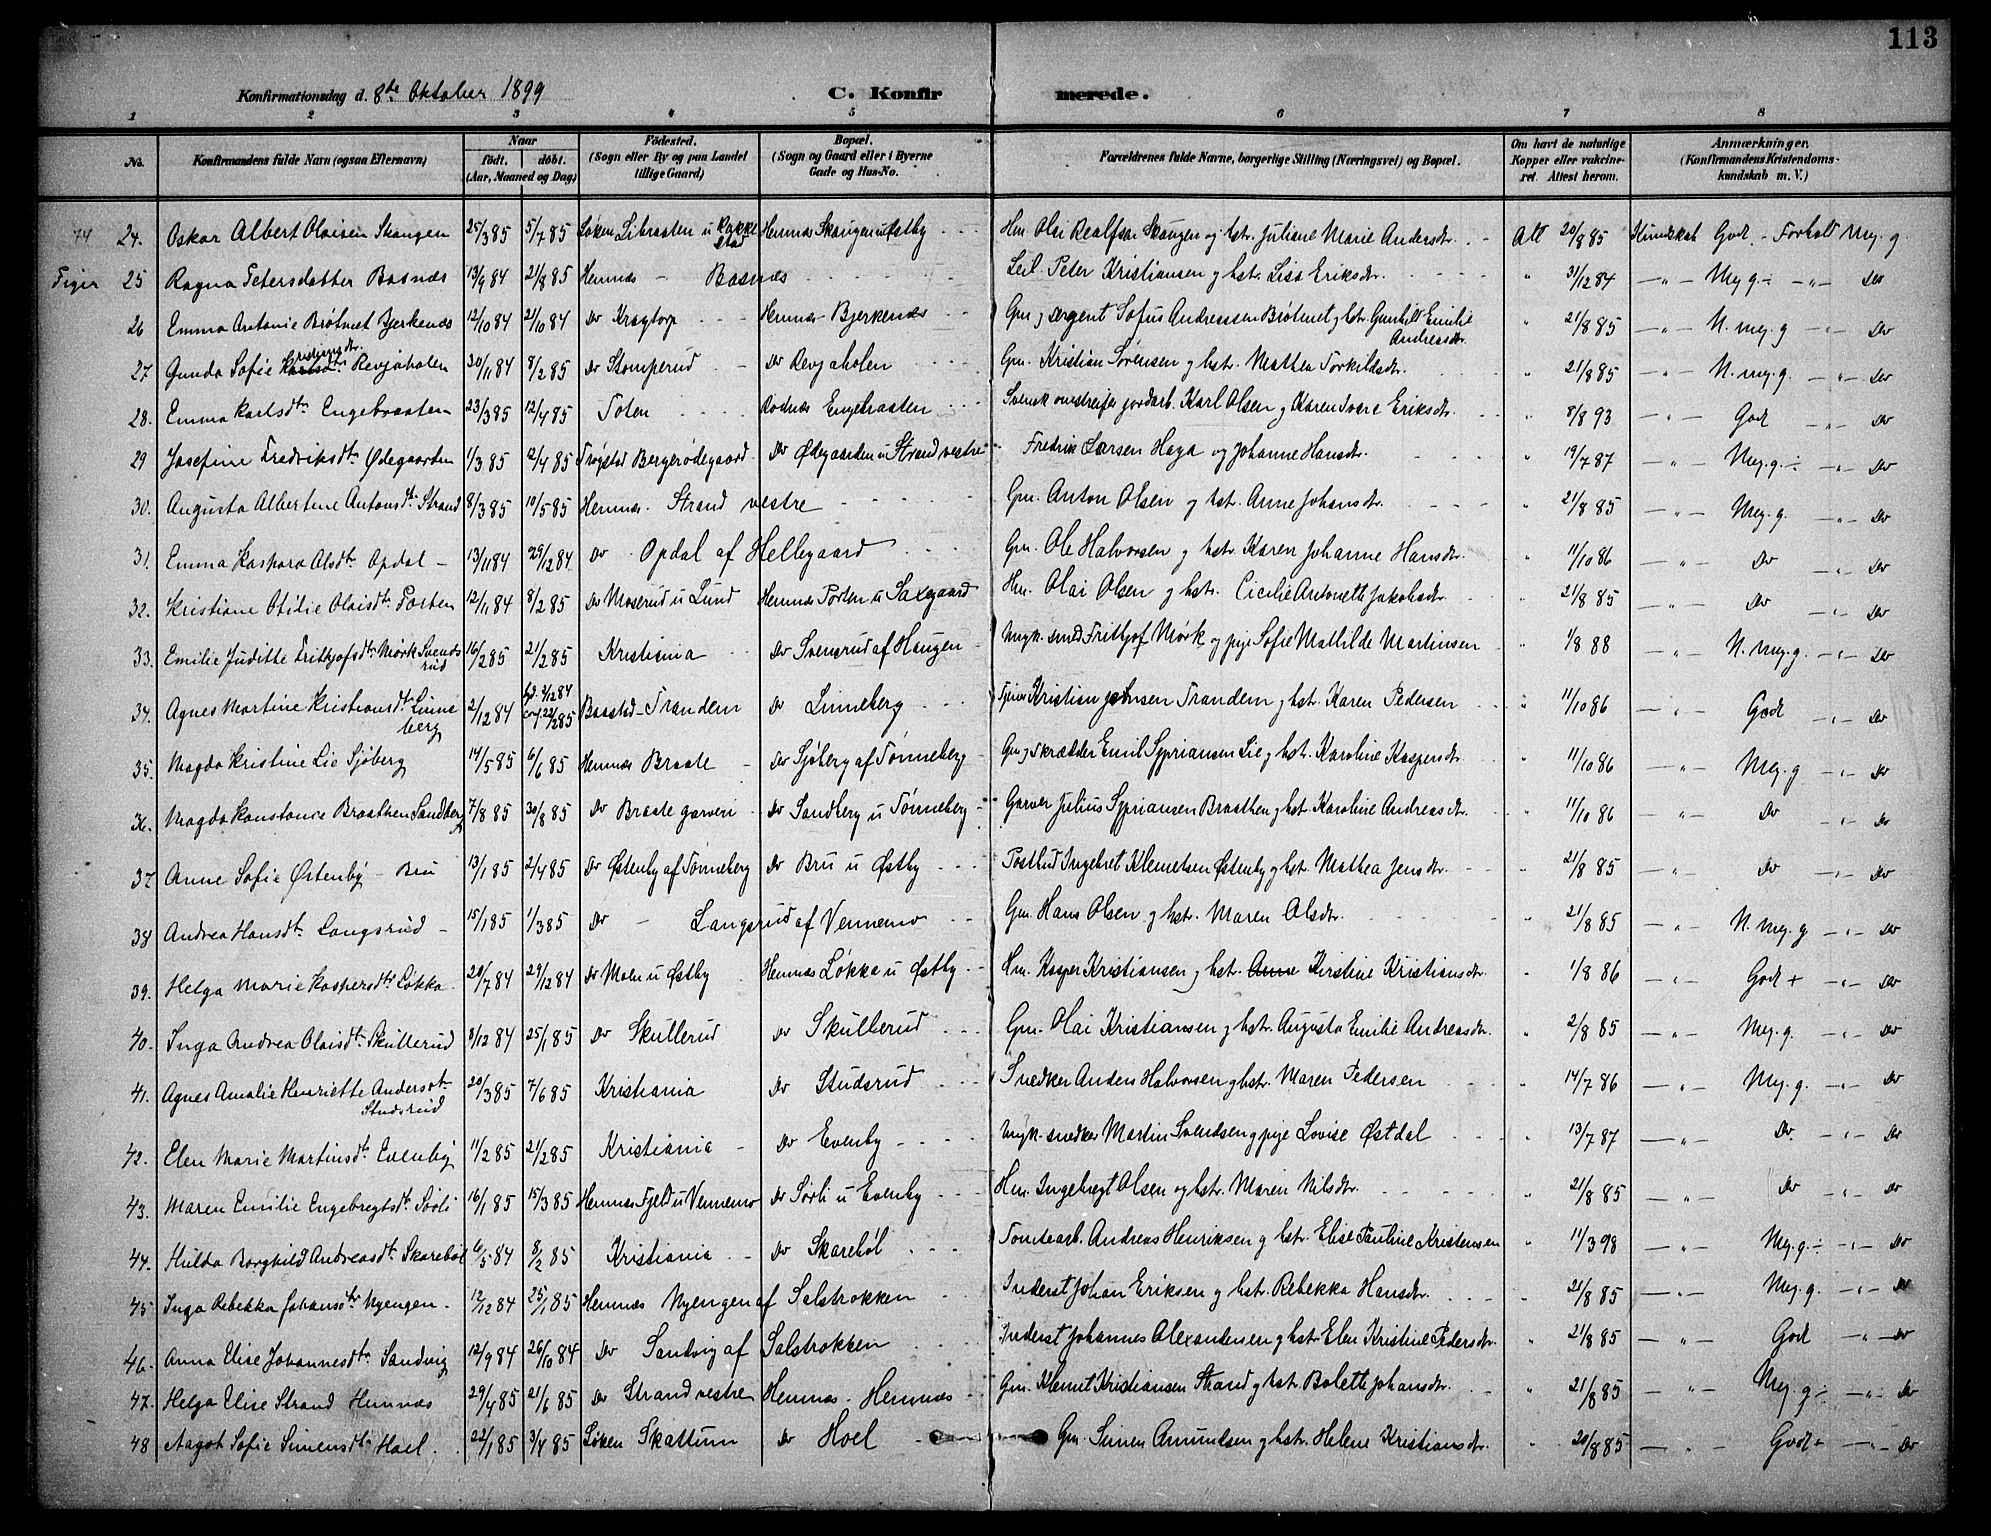 113
Konfirmationsdag d. 8de Oktober 1899
C. Konfirmerede.
1 2 3 4 5 6 7 8
No. Konfirmandens fulde Navn (ogsaa Efternavn) Naar født. døbt. (Aar, Maaned og Dag) Fødested. (Sogn eller By og paa Landet tillige Gaard) Bopæl. (Sogn og Gaard eller i Byerne Gade og Hus-No. Forældrenes fulde Navne, borgerlige Stilling (Næringsvei) og Bopæl. Om havt de naturlige Kopper eller vakcineret. Attest herom. Anmærkninger. (Konfirmandens Kristendomskundskab m. V.)
24. Oskar Albert Olaisen Skangen 25/3 85 5/7 85 Løken Libraaten u Rakkestad Hemnæs Skangen u Østby Hm. Olai Realfsen Skangen og hstr. Juliane Marie Andersdtr. Att 20/8 85 Kundskab Godt - Forhold Meg. g
Piger 25 Ragna Petersdatter Basnæs 13/9 84 21/8 85 Hemnæs - Basnæs Leil. Peter Kristiansen g hstr. Lisa Eriksdtr. " 31/12 84 -"- Meg g ÷ -"- Do
26 Emma Antonie Brøtmet Bjerkenæs 12/10 84 21/10 84 Do Kragtorp Hemnæs Bjerkenæs Gm. g Sergent Sofus Andreassen Brøtmet g hstr. Gunhild Emilie Andreasdtr. " 21/8 85 -"- N. meg. g -"- Do
27 Gunda Sofie Kristiansdtr. Revjaholen 30/11 84 8/2 85 Do Stomperud - Do Revjaholen Gm. Kristian Sørensen g hstr. Mathea Torkildsdtr. " 21/8 85 -"- N. meg. g. -"- Do
28. Emma Karlsdtr Engebraaten 23/3 85 12/4 85 Toten Rødnæs Engebraaten Svensk omstreifer jordarb. Karl Olsen g Karen Tvare Eriksdtr. " 8/8 93 -"- Godt -"- Do
29 Josefine Fredriksdtr Ødegaarden 1/3 85 12/4 85 Trøgstad Bergerødegaard Do Ødegaarden u Strand vestre Fredrik Larsen Haga og Johanne Hansdtr. " 19/7 87 -"- Meg. g. ÷ -"- Do
30. Augusta Albertine Antonsdtr Strand 8/3 85 10/5 85 Hemnæs. Strand vestre Gm. Anton Olsen g hstr. Anne Johansdtr. " 21/8 85 -"- Meg. g. -"- Do
31. Emma Kaspara Olsdtr Opdal - 13/11 84 29/12 84 Do Opdal af Hellegaard Gm. Ole Halvorsen g hstr. Karen Johanne Hansdtr. " 11/10 86 -"- Do -"- Do
32. Kristiane Otilie Olaisdtr Porten 12/11 84 8/2 85 Do Moserud u Lund Hemnæs Porten u Saxegaard Hm. Olai Olsen g hstr. Cicilie Antonette Jakobsdtr " 21/8 85 -"- Do -"- Do
33. Emilie Juditte Fritjofsdtr Mørk Svensrud 16/2 85 21/2 85 Kristiania Do Svensrud af Haugen Ungk. smed Fritjof Mørk og pige Sofie Mathilde Martinsen 1/8 88 -"- N. meg. g. -"- Do
34. Agnes Martine Kristiansdtr Linneberg 2/12 84 hd. 2/12 84 conf. 22/2 85 Baastad - Trandem Do Linneberg Tjener Kristian Johnsen Trandem g hstr. Karen Pedersen " 11/10 86 -"- Godt -"- Do
35. Magda Kristine Lie Sjøberg 14/5 85 6/6 85 Hemnæs Braate - Do Sjøberg af Tønneberg Gm g Skrædder Emil Sypriansen Lie g hstr. Karoline Kaspersdtr " 11/10 86 -"- Meg. g -"- Do
36. Magda Konstanse Braathen Sandberg 7/8 85 30/8 85 Do Braate garveri - Do Sandberg u Tønneberg Garver Julius Sypriansen Braathen g hstr. Karoline Andreasdtr. " 11/10 86 -"- Do -"- Do
37 Anne Sofie Østenby - Bru 13/1 85 2/4 85 Do Østenby af Tønneberg Do Bru u Østby Postbud Ingebret Klemetsen Østenby g hstr. Mathea Jensdtr. " 21/8 85 -"- Do -"- Do
38 Andrea Hansdtr Langsrud - 15/1 85 1/3 85 Do - Langsrud af Vennemo Gm. Hans Olsen g hstr. Maren Olsdtr. " 21/8 85 -"- N. Meg. g -"- Do
39. Helga Marie Kaspersdtr Løkka 20/7 84 29/12 84 Do Moen u Østby Hemnæs Løkka u Østby Hm. Kasper Kristiansen g hstr. Anne Kirstine Kristiansdtr. " 1/8 86 -"- Godt + -"- Do
40. Inga Andrea Olaisdtr Skullerud 8/12 84 25/1 85 Do Skullerud Do Skullerud Gm. Olai Kristiansen g hstr. Augusta Emilie Andreasdtr. " 2/8 85 -"- Meg. g. -"- Do
41. Agnes Amalie Henriette Andersdtr Studsrud 20/3 85 7/6 85 Kristiania Do Studsrud Snedker Anders Halvorsen g hstr. Maren Pedersen " 14/7 86 -"- Meg. g. -"- Do
42. Elen Marie Martinsdtr Evenby 11/2 85 21/2 85 Kristiania - Do Evenby Ungk. snedker Martin Svendsen g pige Lovise Østdal " 13/7 87 -"- Do. -"- Do
43. Maren Emilie Engebregtsdtr Sørli 16/1 85 15/3 85 Hemnæs Fjeld u Vennemo Do Sørli u Evenby Hm. Ingebregt Olsen og hstr. Maren Nilsdtr. " 21/8 85 -"- Do -"- Do
44. Hulda Borghild Andreasdtr Skarebøl 6/5 84 8/2 85 Kristiania - Do Skarebøl Tomtearb. Andreas Henriksen g hstr. Elise Pauline Kristensen " 11/3 98 -"- Meg. g. ÷ -"- Do
45 Inga Rebekka Johansdtr Nyengen. 12/12 84 25/1 85 Hemnæs Nyengen af Salstrokken Inderst Johan Eriksen g hstr. Rebekka Hansdtr. " 21/8 85 -"- Meg. g. -"- Do
46. Anna Elise Johannesdtr Sandvig 12/9 84 26/10 84 Do Sandvig af Salstrokken Inderst Johannes Alexandersen g hstr. Elen Kristine Pedersdtr. " 21/8 85 -"- Godt -"- Do
47. Helga Elise Strand Hemnæs 29/4 85 21/6 85 Do Strand vestre Hemnæs. Hemnæs Gm. Klemet Kristiansen Strand g hstr. Bolette Johansdtr. " 21/8 85 -"- Meg. g ÷ -"- Do
48 Aagot Sofie Simensdtr Hoel. 22/1 85 3/4 85 Løken Skattum Do Hoel Gm. Simen Amundsen g hstr. Helene Kristiansdtr. " 20/8 85 -"- Godt + -"- Do